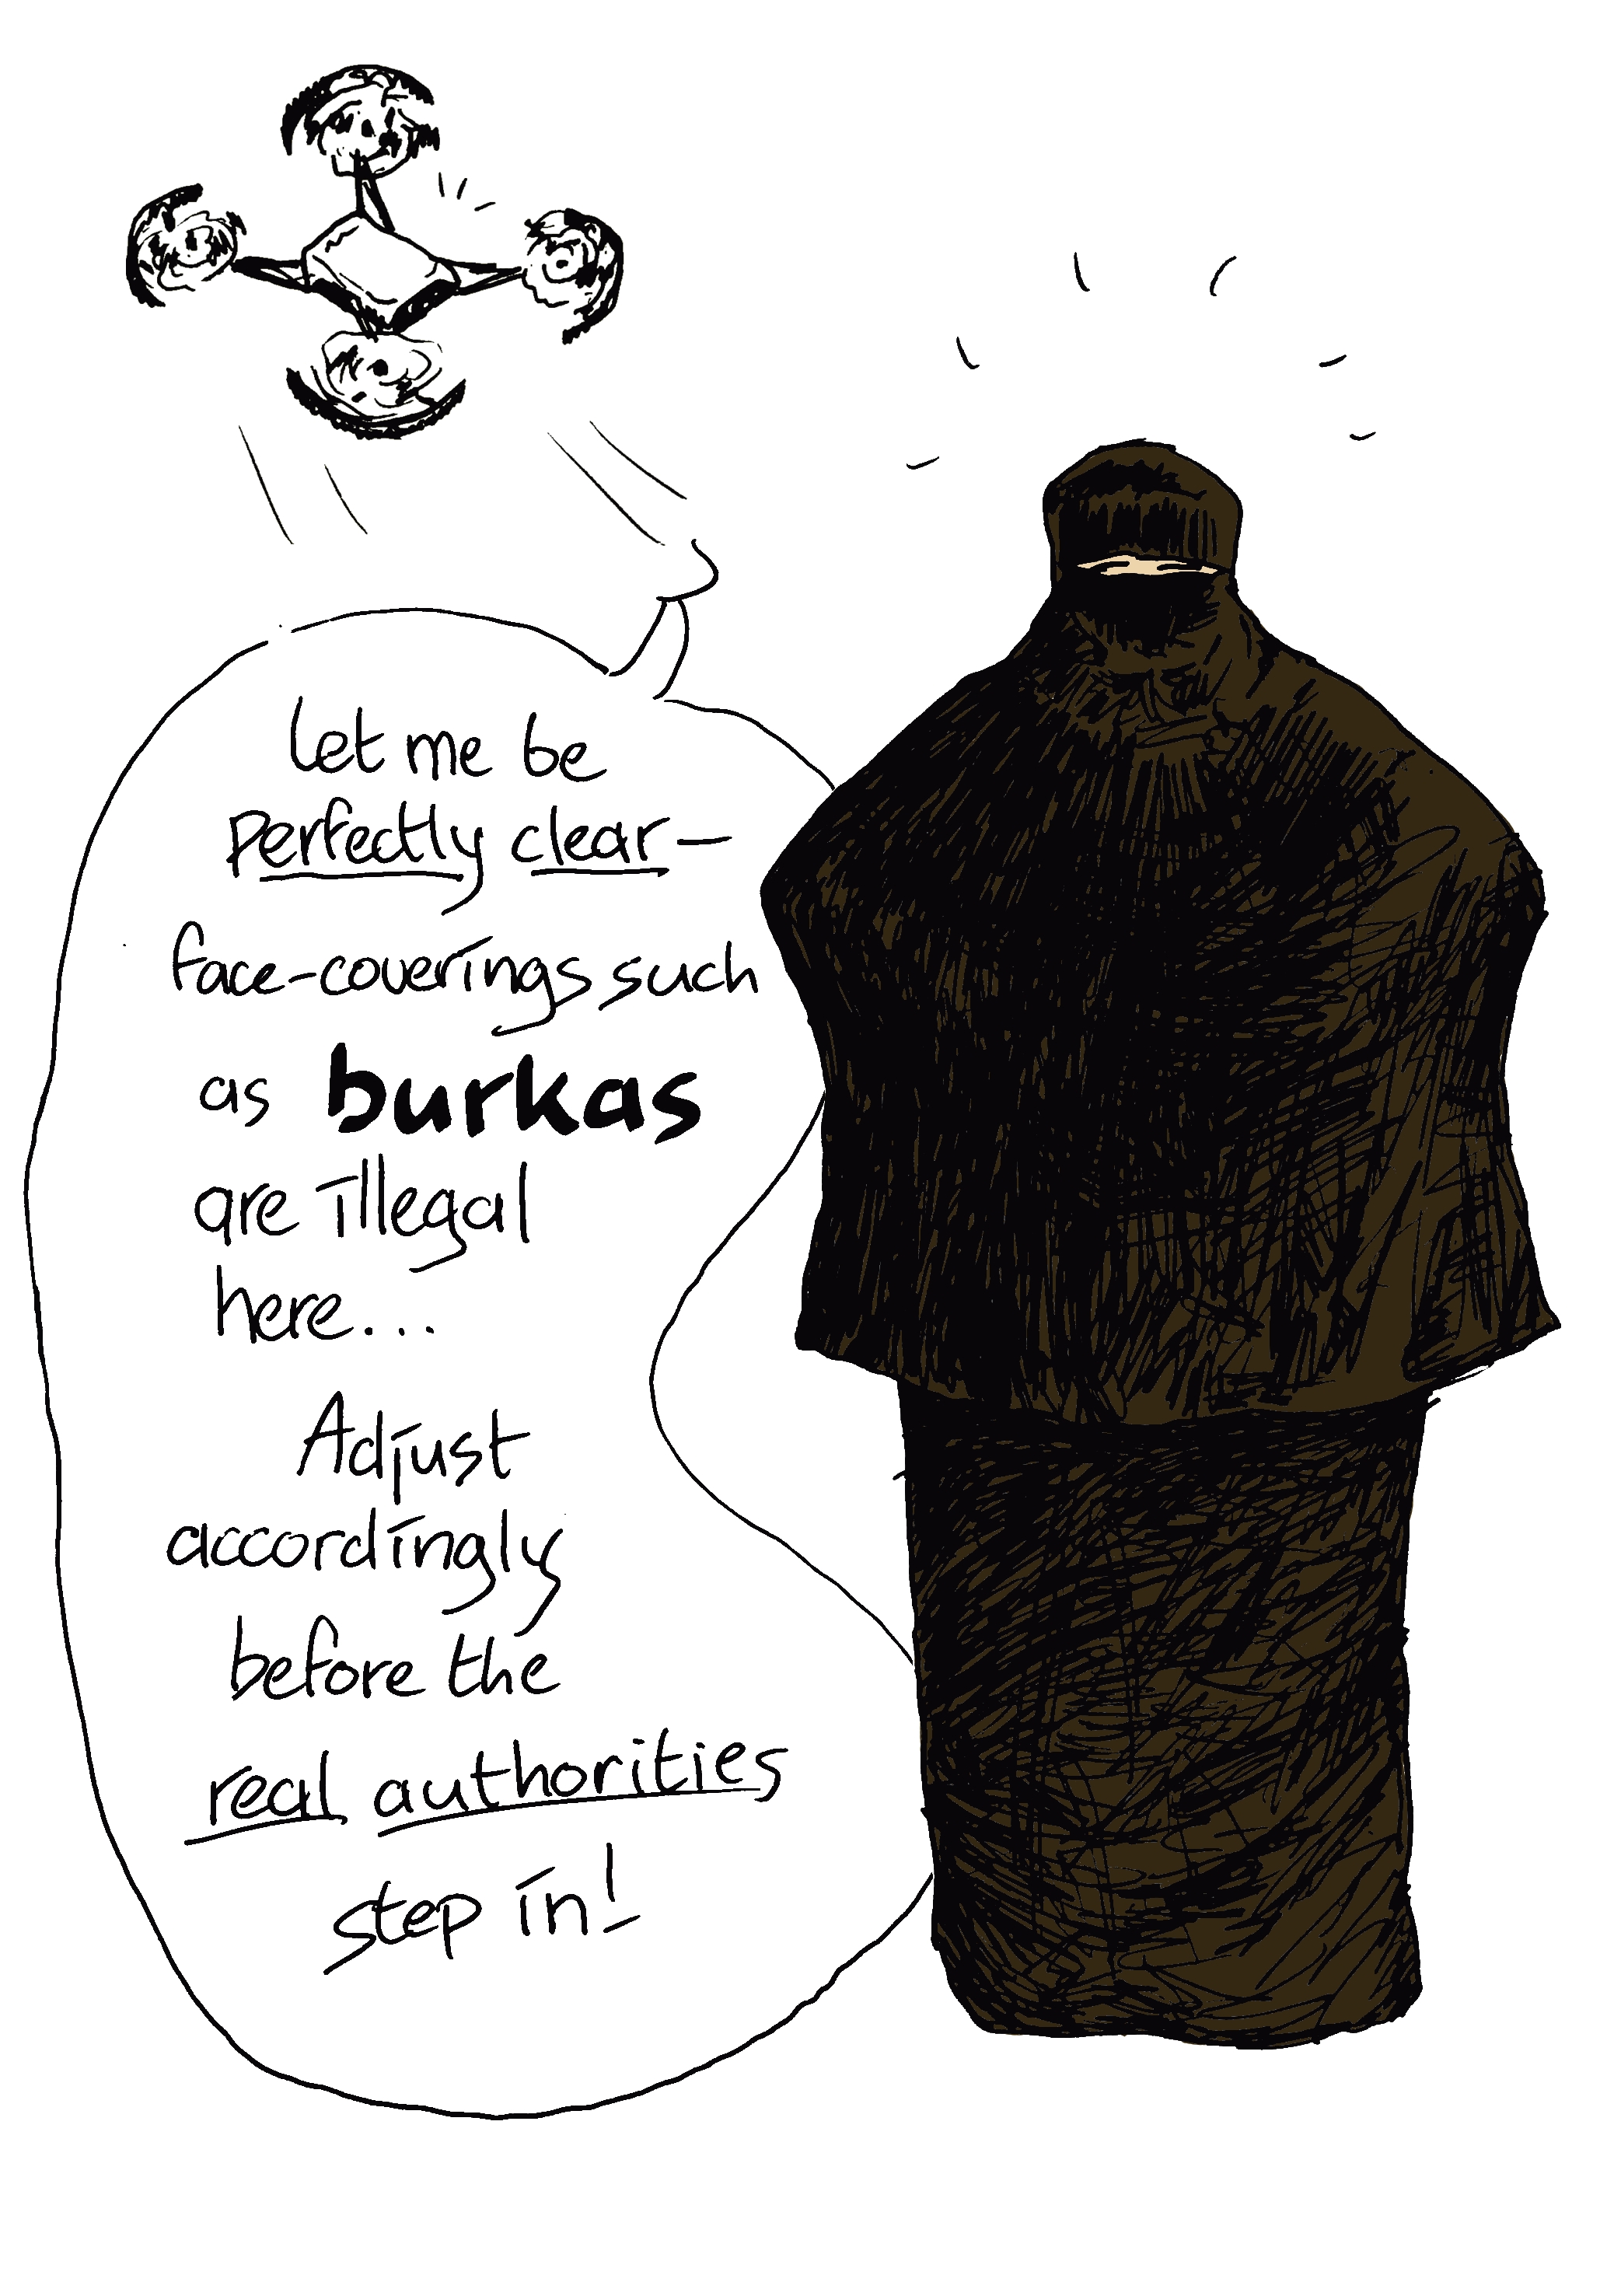 let me be
perfectly clear—
face-coverings such
as burkas
are illegal
here...
Adjust
accordingly
before the
real authorities
step in!